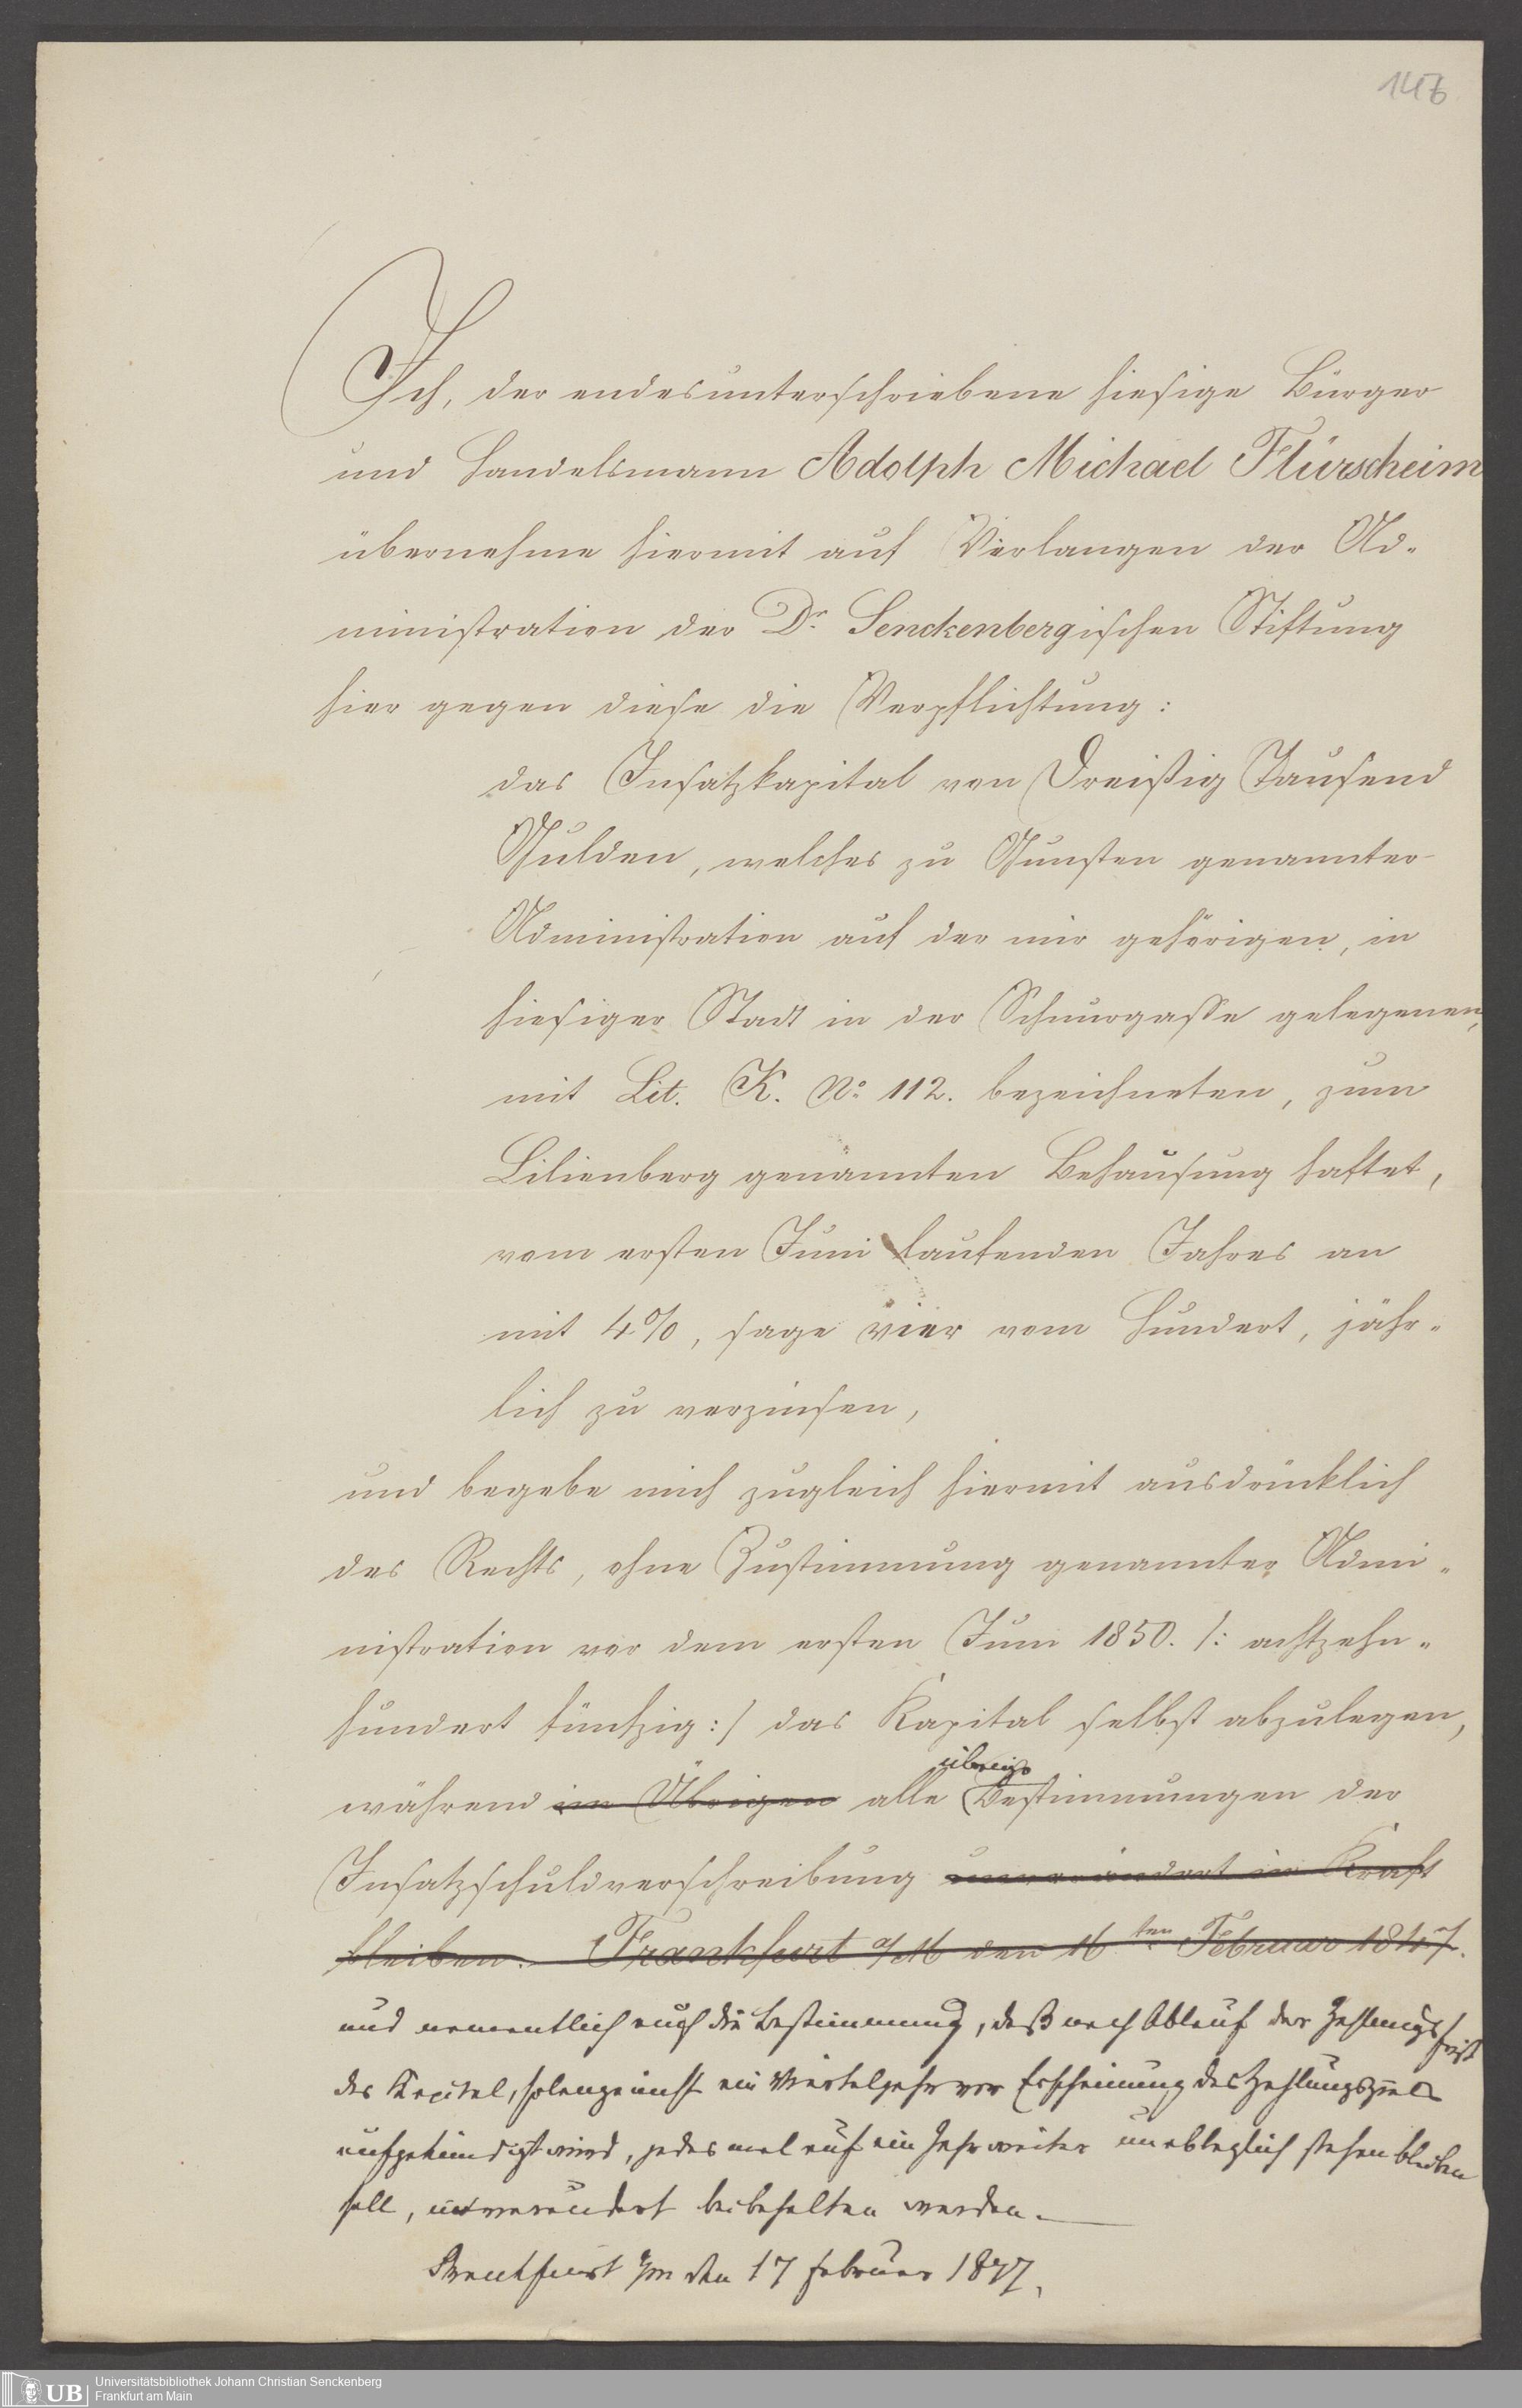 146
Ich, der endesunterschriebene hiesige Bürger
und Handelsmann Adolph Michael Flürscheim
übernehme hiermit auf Verlangen der Ad-
ministration der Dr. Senckenbergischen Stiftung
hier gegen diese die Verpflichtung:
das Insatzkapital von Dreißig Tausend
Gulden, welches zu Gunsten genannter
Administration auf der mir gehörigen, in
hiesiger Stadt in der Schnurgasse gelegenen,
mit Lit. K. No. 112. bezeichneten, zum
Lilienberg genannten Behausung haftet,
vom ersten Juni laufenden Jahres an
mit 4%, sage vier vom Hundert, jähr-
lich zu verzinsen,
und begebe mich zugleich hiermit ausdrücklich
des Rechts, ohne Zustimmung genannter Admi-
nistration vor dem ersten Juni 1850. /: achtzehn-
hundert fünfzig :/ das Kapital selbst abzulegen,
übrige
während im Übrigen alle Bestimmungen der
Insatzschuldverschreibung unverändert in Kraft
bleiben. Frankfurt a/M den 16ten Februar 1847.
und namentlich auch die Bestimmung, daß nach Ablauf der Zahlungsfrist
das Kapital, solange nicht ein Vierteljahr vor Erscheinung des Zahlungsziels
aufgekündigt wird, jedesmal auf ein Jahr weiter unableglich stehen bleiben
soll, unverändert beibehalten werden.
Frankfurt a/m den 17 Februar 1847.
UB
Universitätsbibliothek Johann Christian Senckenberg
Frankfurt am Main